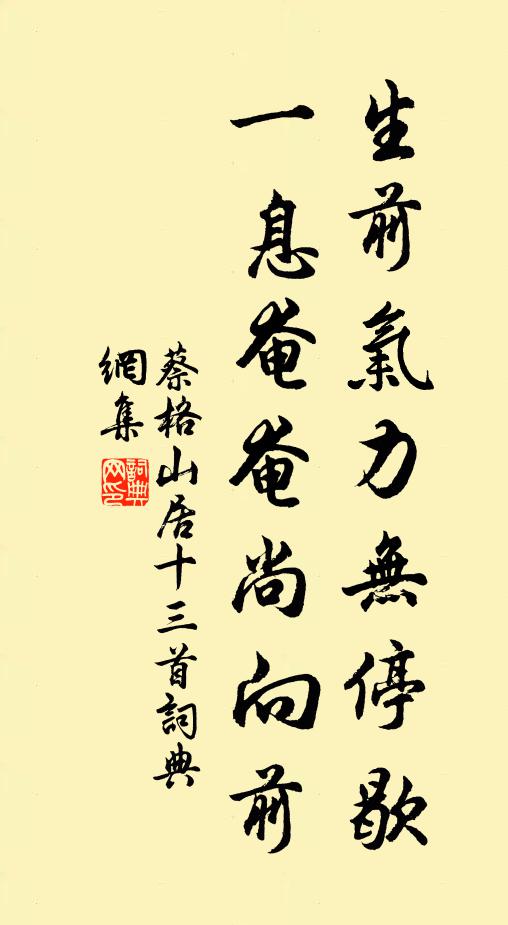 生前氣力無停歇
一息奄奄尚向前
蔡格山居十三首詞典
網集
詞典
网印